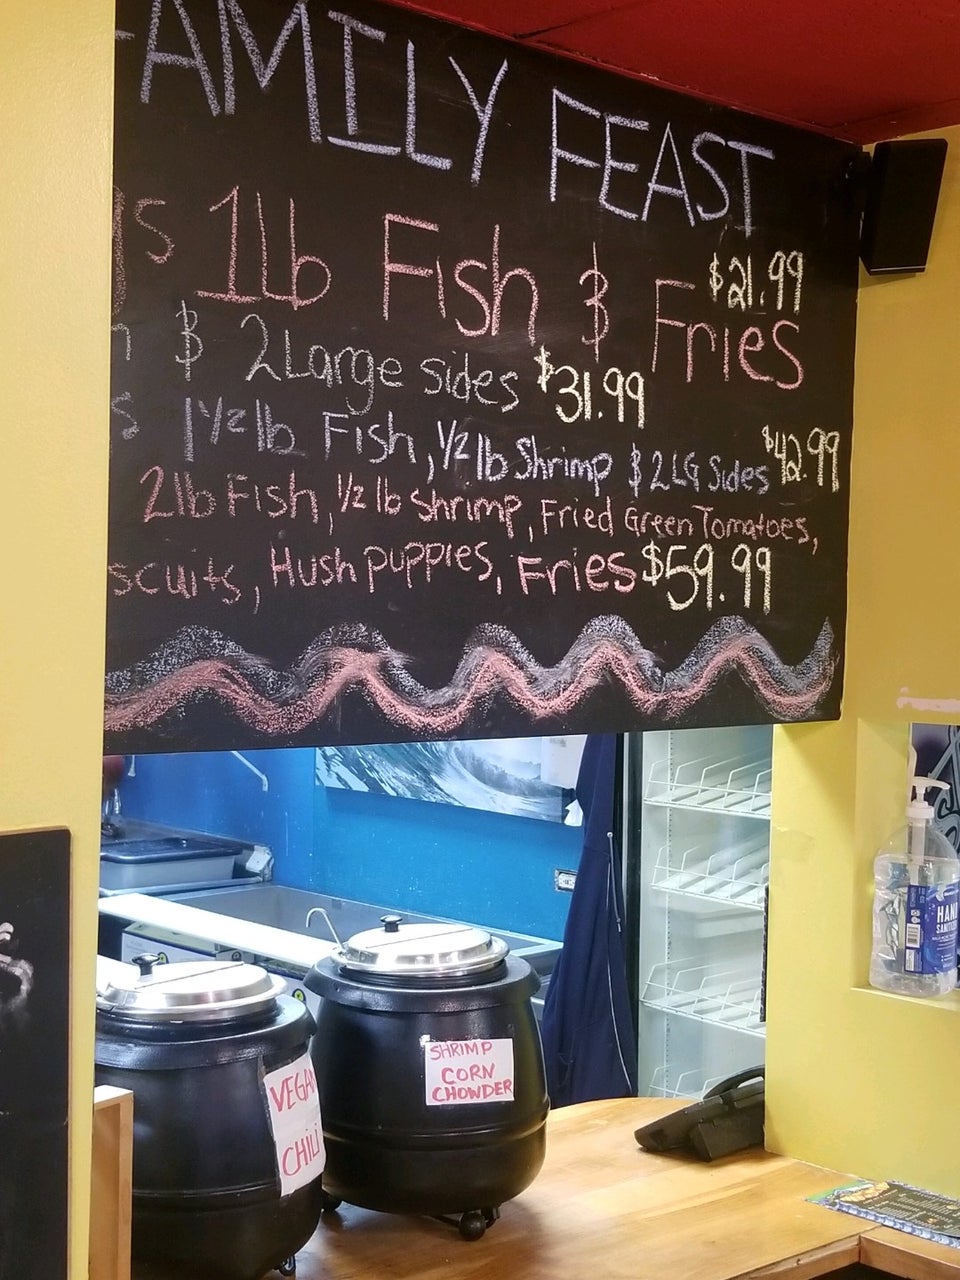 FAMILY FEAST
1lb Fish & Fries $21.99
& 2 Large sides $31.99
1 1/2 lb Fish, 1/2 lb Shrimp & 2 LG Sides $42.99
2lb Fish, 1/2 lb Shrimp, Fried Green Tomatoes,
scuits, Hush puppies, Fries $59.99
SHRIMP
CORN
CHOWDER
VEGAN
CHILI
HAND
SANITIZER